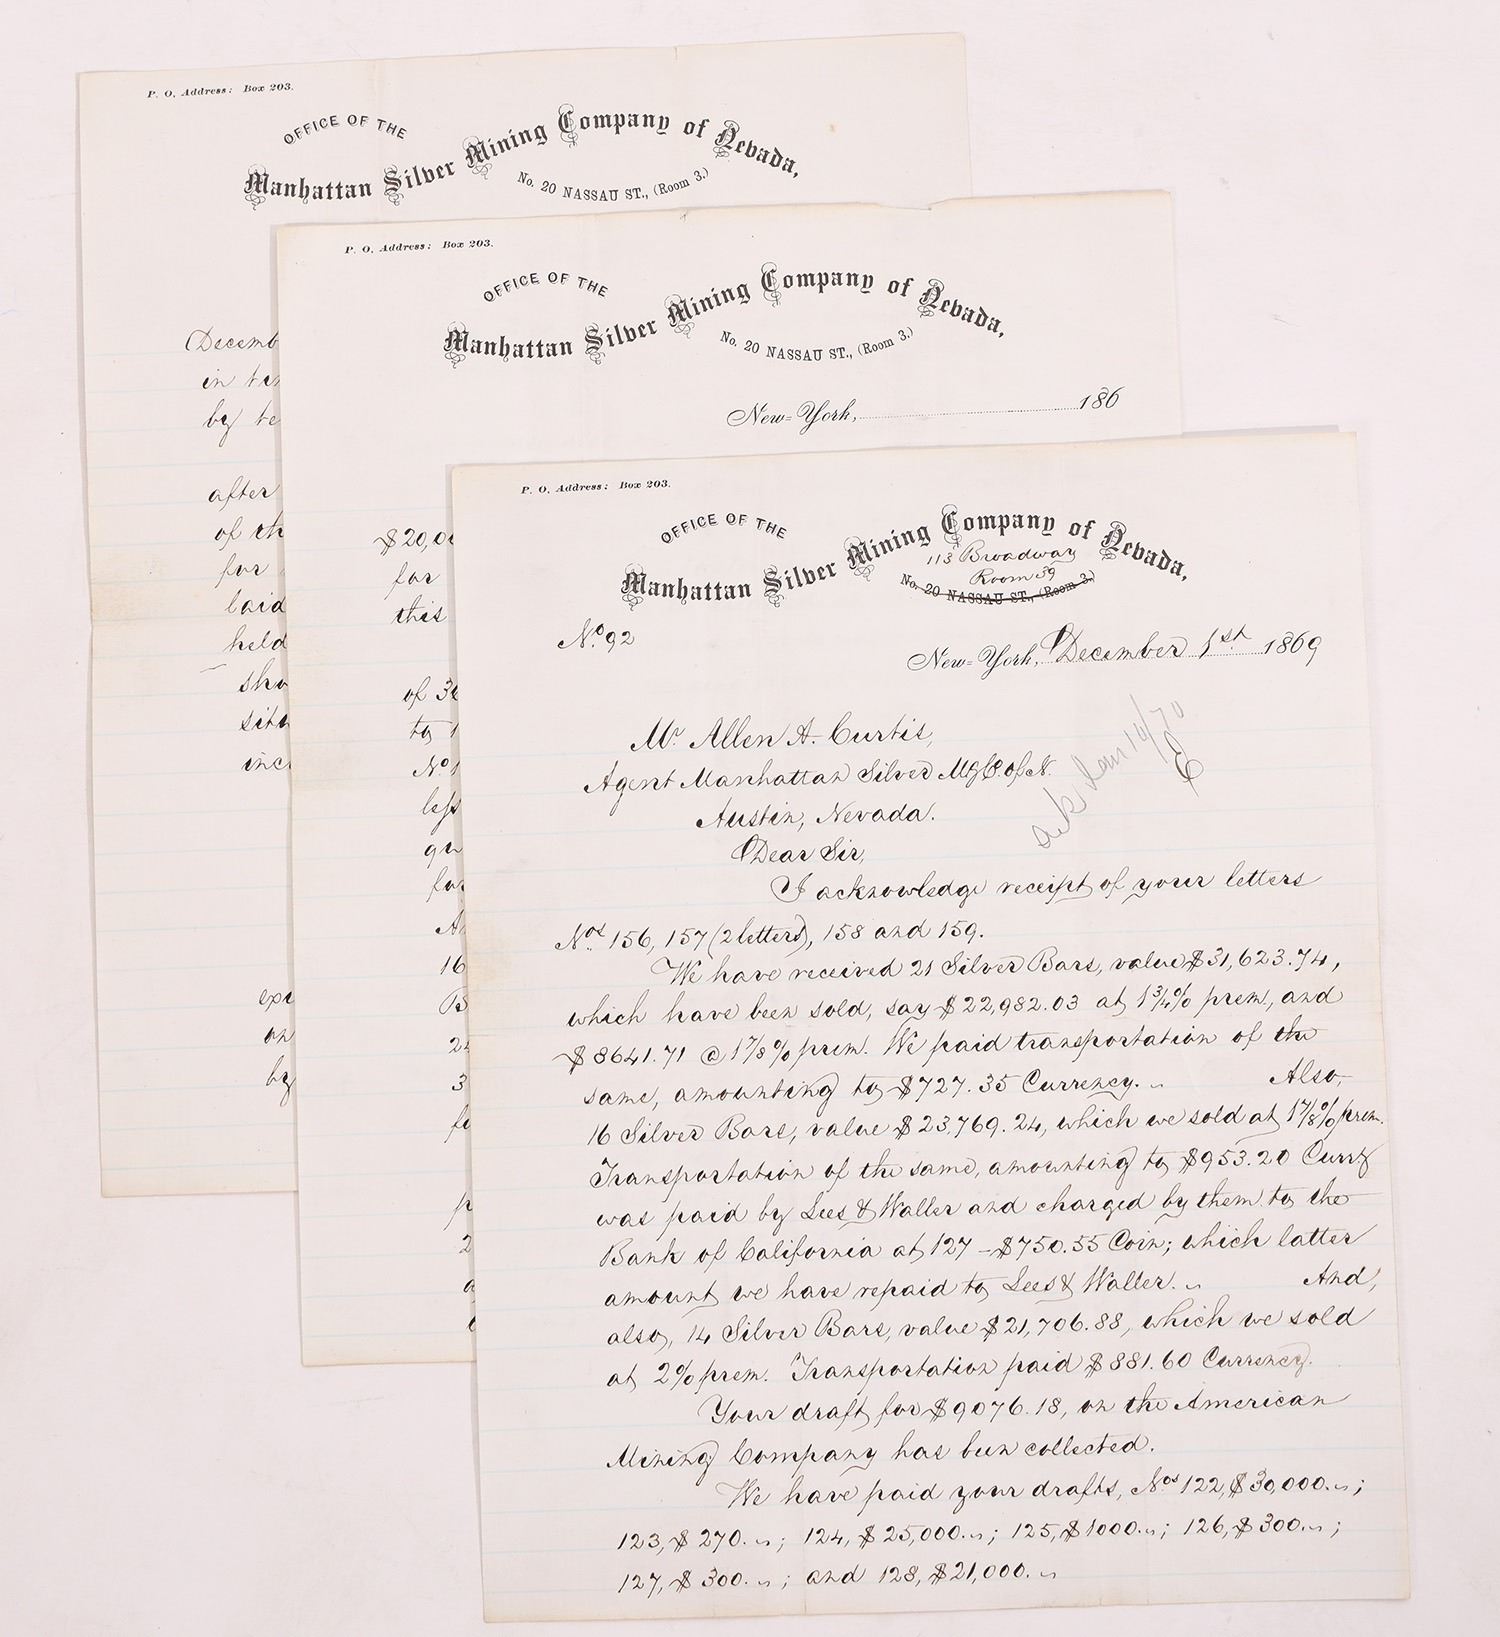 P. O. Address: Box 203.
OFFICE OF THE
Manhattan Silver Mining Company of Nevada,
No. 20 NASSAU ST., (Room 3.)
Decemb
in
by te
after
of th
for
laid
held
sho
situ
inc
exp
on
by
P. O. Address: Box 203.
OFFICE OF THE
Manhattan Silver Mining Company of Nevada,
No. 20 NASSAU ST., (Room 3.)
New-York, 186
$20,0
for
this
of 3
to 1
No 1
less
qu
for
A
16
B
2
3
f
p
2
a
P. O. Address: Box 203.
OFFICE OF THE
Manhattan Silver Mining Company of Nevada,
113 Broadway
Room 59
No. 20 NASSAU ST., (Room 3.)
No. 92
New-York, December 1st 1869
Mr Allen A. Curtis,
Agent Manhattan Silver Mg Co. of N.
Austin, Nevada.
Dear Sir,
ack Jan 14/70
C
I acknowledge receipt of your letters
Nos. 156, 157 (2 letters), 158 and 159.
We have received 21 Silver Bars, value $31,623.74,
which have been sold, say $22,982.03 at 1 3/4 % prem, and
$8641.71 @ 1 7/8 % prem. We paid transportation of the
same, amounting to $727.35 Currency. Also,
16 Silver Bars, value $23,769.24, which we sold at 1 7/8 % prem.
Transportation of the same, amounting to $953.20 Curry
was paid by Lees & Waller and charged by them to the
Bank of California at 127 - $750.55 Coin; which latter
amount we have repaid to Lees & Waller. And,
also, 14 Silver Bars, value $21,706.88, which we sold
at 2% prem. Transportation paid $881.60 Currency.
Your draft for $9076.18, on the American
Mining Company has been collected.
We have paid your drafts, Nos 122, $30,000. ;
123, $270. ; 124, $25,000. ; 125, $1000. ; 126, $300. ;
127, $300. ; and 128, $21,000.